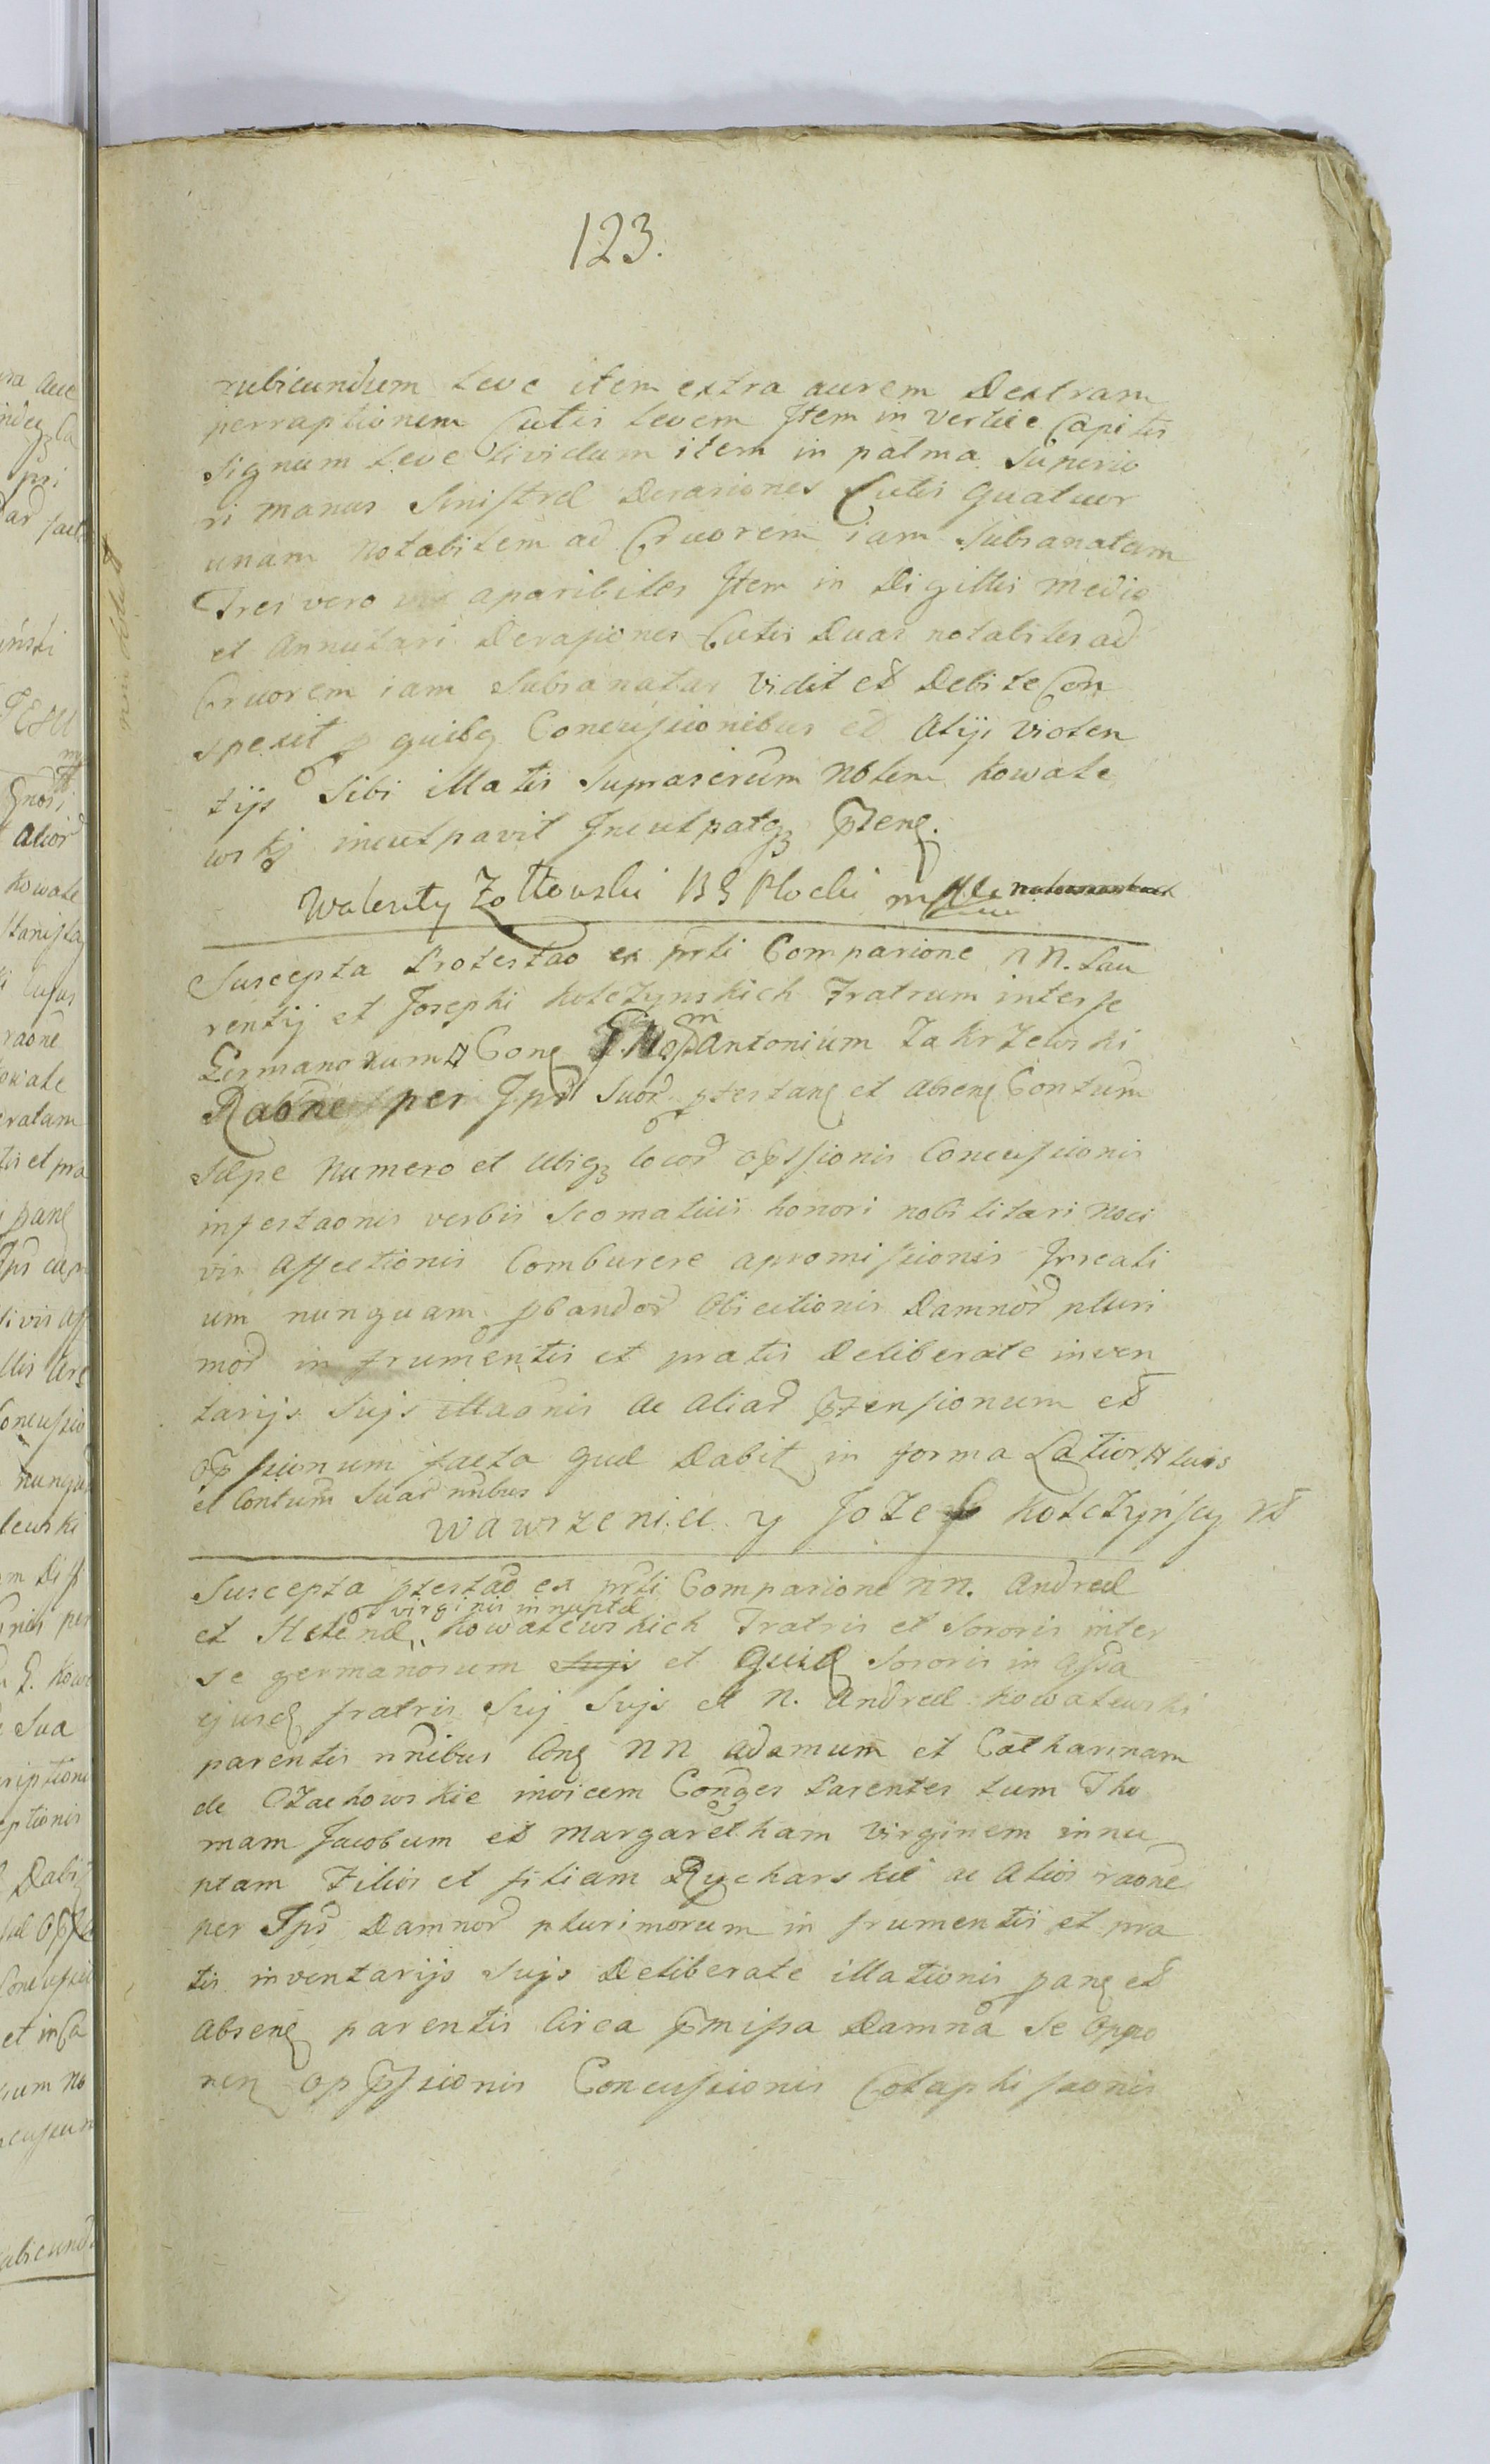 123.
rubicundum Leve item extra aurem Dextram
perraptionem Cutis Levem Jtem in Vertice Capitis
Signum Leve Lividum item in palma Superio
ri manus Sinistræ Derasiones Cutis Quatuor
unam Notabilem ad Cruorem iam Subsanatam
Tres vero vix aparibiles Jtem in Digittis Medio
et Annulari Derasiones Cutis Duas notabiles ad
Cruorem iam Subsanatas Vidit et Debite Con
spexit p quibq Concussionibus et Alijs violen
tijs Sibi illatis Suprascrũm Nblem Kowale
wskj inculpavit Jnculpatqz
Walenty Zołtowski B G Płocki
Suscepta Protestao ex prñti Comparione NN. Lau
rentij et Josephi Kołczynskich Fratrum inter se
Germanorum Conq Antonium Zakrzewski
Raõne per Jpm Suor ptestanq et absenq Contum
Sæpe Numero et Ubiqz locor opssionis Concussionis
infestaonis verbis Scomaticis honori nobilitari Noci
vis Affectionis Comburere apromissionis
um nunquam pbandor Obiectionis Damnor pluri
mor in frumentis et pratis Deliberate inven
tarijs Sujs illaonis ac aliar ptensionum et
opsionum facta Quæ Dabit in forma Latiori Suis
et Contum Suar nñibus
Wawrzeniec y Jozef Kołczyńscy
Suscepta ptestao ex prñti Comparione NN. Andreæ
virginis innuptæ
et Helenæ Kowalewskich Fratris et Sororis inter
se germanorum Sujs et Quid Sororis in Assa
ejusq fratris Suj Sujs et N. Andreæ Kowalewski
parentis nñibus Conq NN Adamum et Catharinam
de Czachowskie invicem Conges Parentes tum Tho
mam Jacobum et Margaretham Virginem innu
ptam Filios et filiam Rycharskie ac Alios raone
per Jps Damnor plurimorum in frumentis et pra
tis inventarijs Sujs Deliberate illationis panq et
absenq parentis Circa pmissa Damna Se Oppo
nen oppssionis Concussionis Colaphissaonis